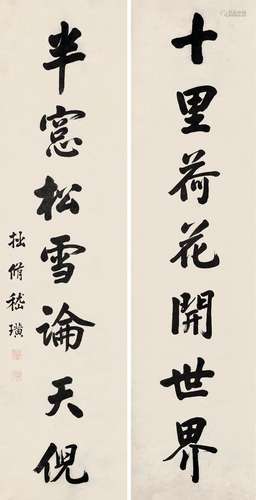 十里荷花開世界
半窓松雪論天倪
拙脩嵇璜